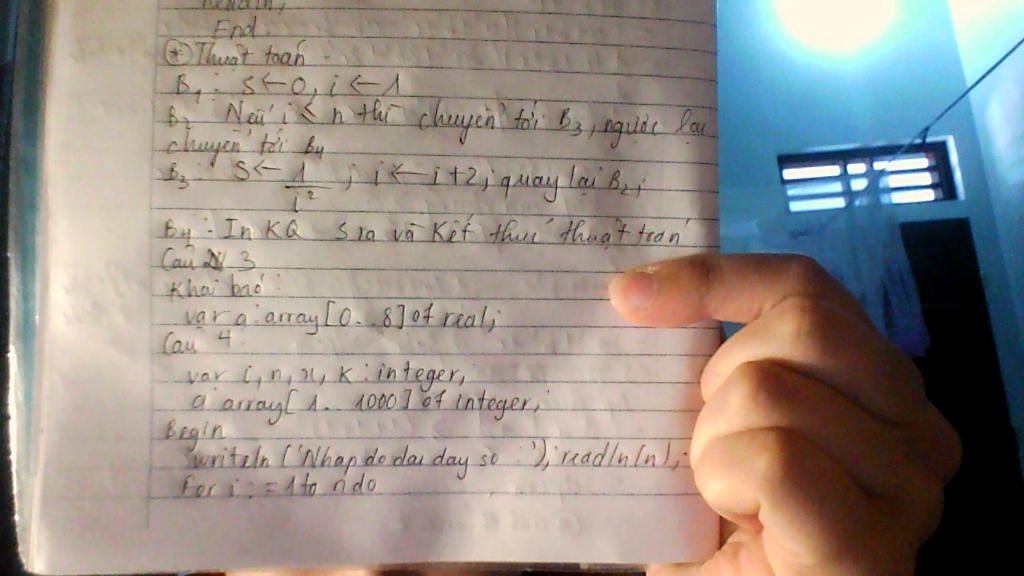 Readln;
End.
(+) Thuật toán
B1: S ← 0, i ← 1
B2: Nếu i ≤ n thì chuyển tới B3, ngược lại
chuyển tới B4
B3: S ← 1/i² ; i ← i+2; quay lại B2;
B4: In KQ S ra và Kết thúc thuật toán
Câu 3
Khai báo:
var a: array[0..8] of real;
Câu 4:
var i, n, x, k: integer;
a: array[1..1000] of integer;
Begin
writeln ('Nhap do dai day so : '); readln(n);
For i := 1 to n do